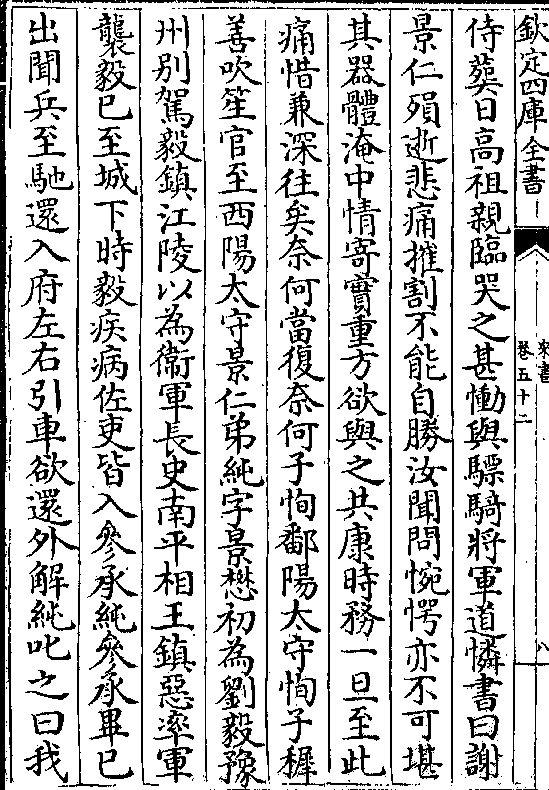 欽定四庫全書
宋書
卷五十二
八
侍葬日高祖親臨哭之甚慟與驃騎將軍道憐書曰謝
景仁殞逝悲痛摧割不能自勝汝聞問惋愕亦不可堪
其器體淹中情寄實重方欲與之共康時務一旦至此
痛惜兼深往矣奈何當復奈何子恂鄱陽太守恂子穉
善吹笙官至西陽太守景仁弟純字景懋初為劉毅豫
州别駕毅鎮江陵以為衛軍長史南平相王鎮惡率軍
襲毅已至城下時毅疾病佐吏皆入參承純參承畢已
出聞兵至馳還入府左右引車欲還外解純叱之曰我